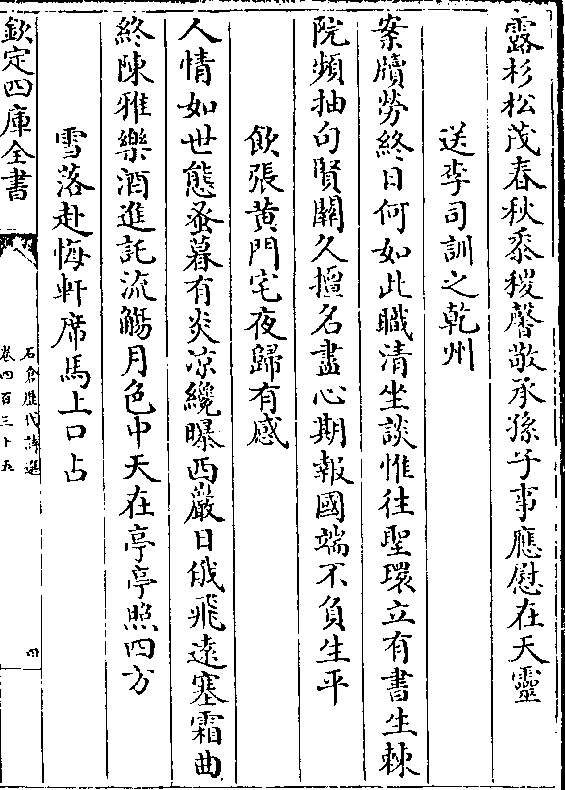 露杉松茂春秋黍稷馨敬承孫子事應慰在天靈
送李司訓之乾州
案牘勞終日何如此職清坐談惟往聖環立有書生棘
院頻抽句賢關久擅名盡心期報國端不負生平
飲張黄門宅夜歸有感
人情如世態蚤暮有炎凉纔曝西巖日俄飛遠塞霜曲
終陳雅樂酒進託流觴月色中天在亭亭照四方
雪落赴悔軒席馬上口占
欽定四庫全書
石倉歷代詩選
卷四百三十五
四